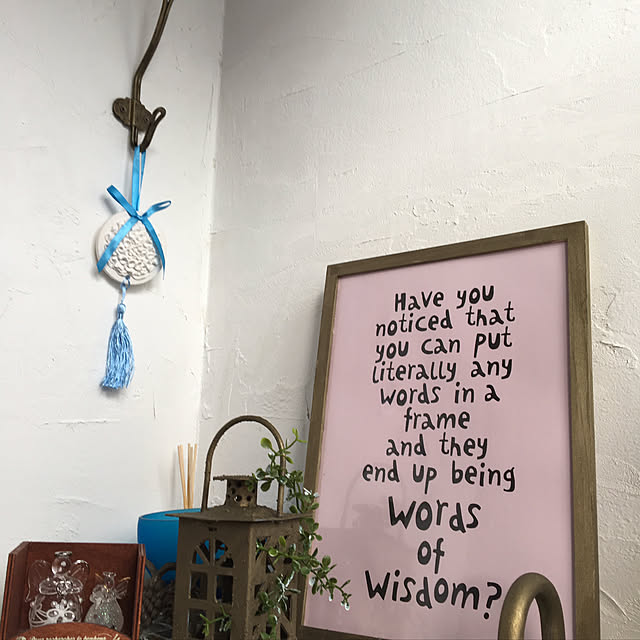 Have you
noticed that
you can put
literally any
words in a
frame
and they
end up being
words
of
wisdom?